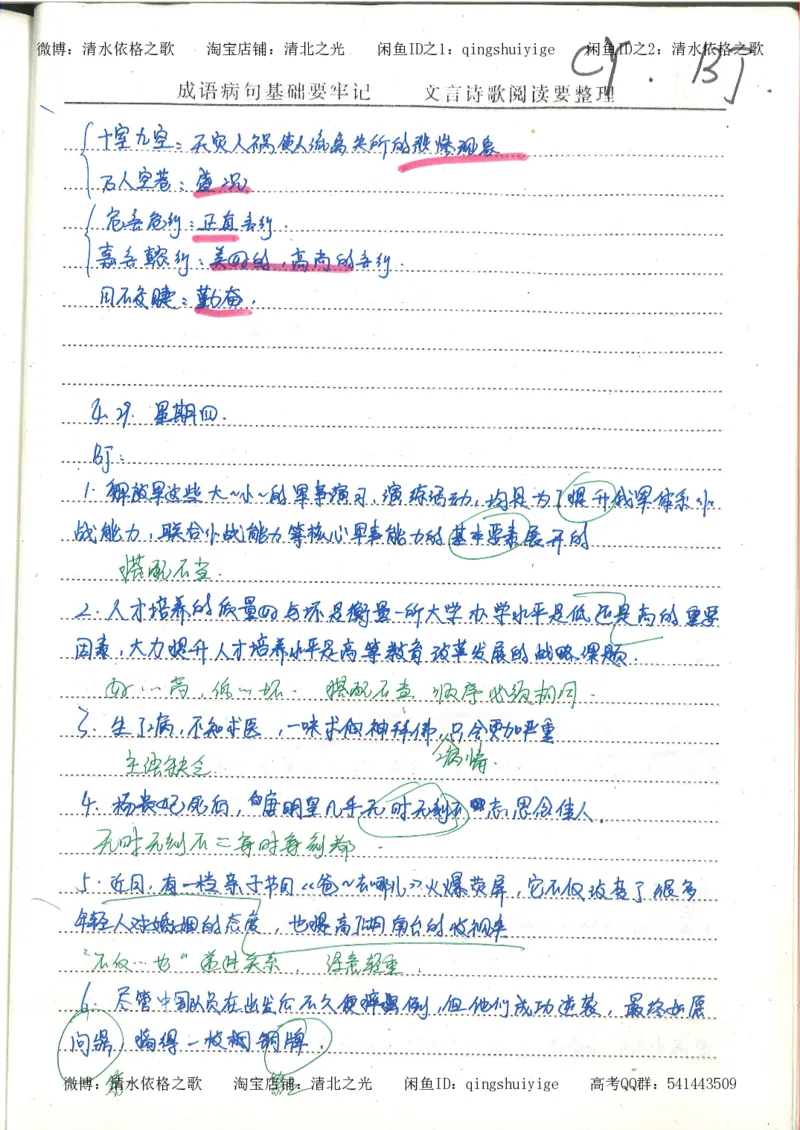 微博：清水依格之歌 淘宝店铺：清北之光 闲鱼ID之1：qingshuiyige 闲鱼ID之2：清水依格之歌
CY. BJ.
成语病句基础要牢记 文言诗歌阅读要整理
十室九空：天灾人祸使人流离失所的悲惨现象
万人空巷：盛况
危言危行：正直言行.
嘉言懿行：美好的，高尚的言行.
目不交睫：勤奋.
4.29. 星期四.
BJ：
1. 解放军这些大~小~的军事演习，演练活动，均是为了提升我军体系作
战能力，联合作战能力等核心军事能力的基本要素展开的
搭配不当.
2. 人才培养的质量好与坏是衡量一所大学办学水平是低还是高的重要
因素，大力提升人才培养水平是高等教育改革发展的战略课题.
好··一高，低一坏. 搭配不当 顺序必须相同.
3. 生了病，不知求医，一味求神拜佛，只会更加严重
病情
主语缺乏.
4. 杨贵妃死后，唐明皇几乎无时无刻不思念佳人.
无时无刻不=每时每刻都.
5. 近日，有一档亲子节目《爸~去哪儿》火爆荧屏，它不仅改变了很多
年轻人对婚姻的态度，也提高了湖南台的收视率
"不仅…也"递进关系，得意轻重.
6. 尽管中国队员在出发后不久便摔倒，但他们成功逆袭，最终如愿
问鼎，摘得一枚铜牌.
第一 第三
微博：清水依格之歌 淘宝店铺：清北之光 闲鱼ID：qingshuiyige 高考QQ群：541443509